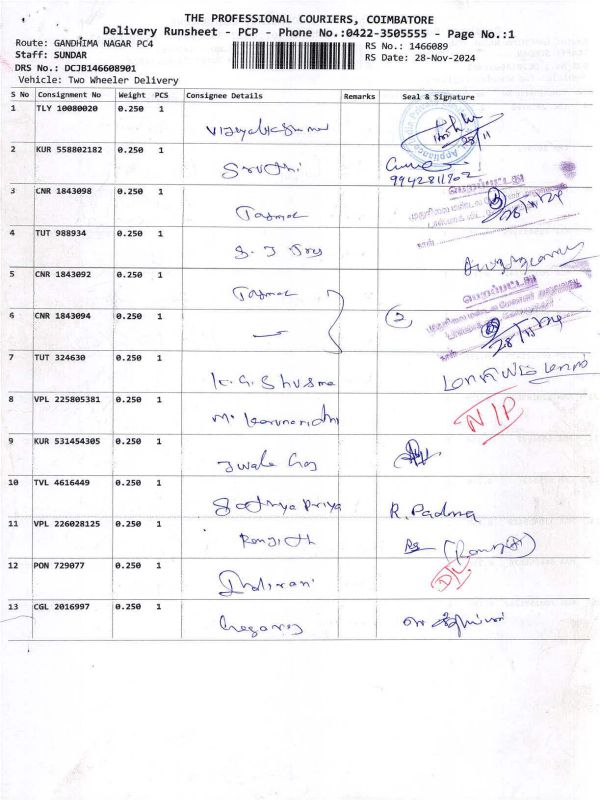 THE PROFESSIONAL COURIERS, COIMBATORE
Delivery Runsheet - PCP - Phone No.:0422-3505555 - Page No.:1
Route: GANDHIMA NAGAR PC4
RS No.: 1466089
Staff: SUNDAR
RS Date: 28-Nov-2024
DRS No.: DCJB146608901
Vehicle: Two Wheeler Delivery
S No Consignment No Weight PCS Consignee Details Remarks Seal & Signature
1 TLY 10080020 0.250 1
28/11
2 KUR 558802182 0.250 1 Sruthi
9942811902
3 CNR 1843098 0.250 1 Tasmac
28/11/24
4 TUT 988934 0.250 1 S. J Joy
5 CNR 1843092 0.250 1 Tasmac
6 CNR 1843094 0.250 1 2
28/11/24
7 TUT 324630 0.250 1 K. G. Shusma
8 VPL 225805381 0.250 1 M. Karunanidhi N/P
9 KUR 531454305 0.250 1
10 TVL 4616449 0.250 1 Sathya Priya R. Padma
11 VPL 226028125 0.250 1 Ranjith
12 PON 729077 0.250 1 Indirani D/L
13 CGL 2016997 0.250 1